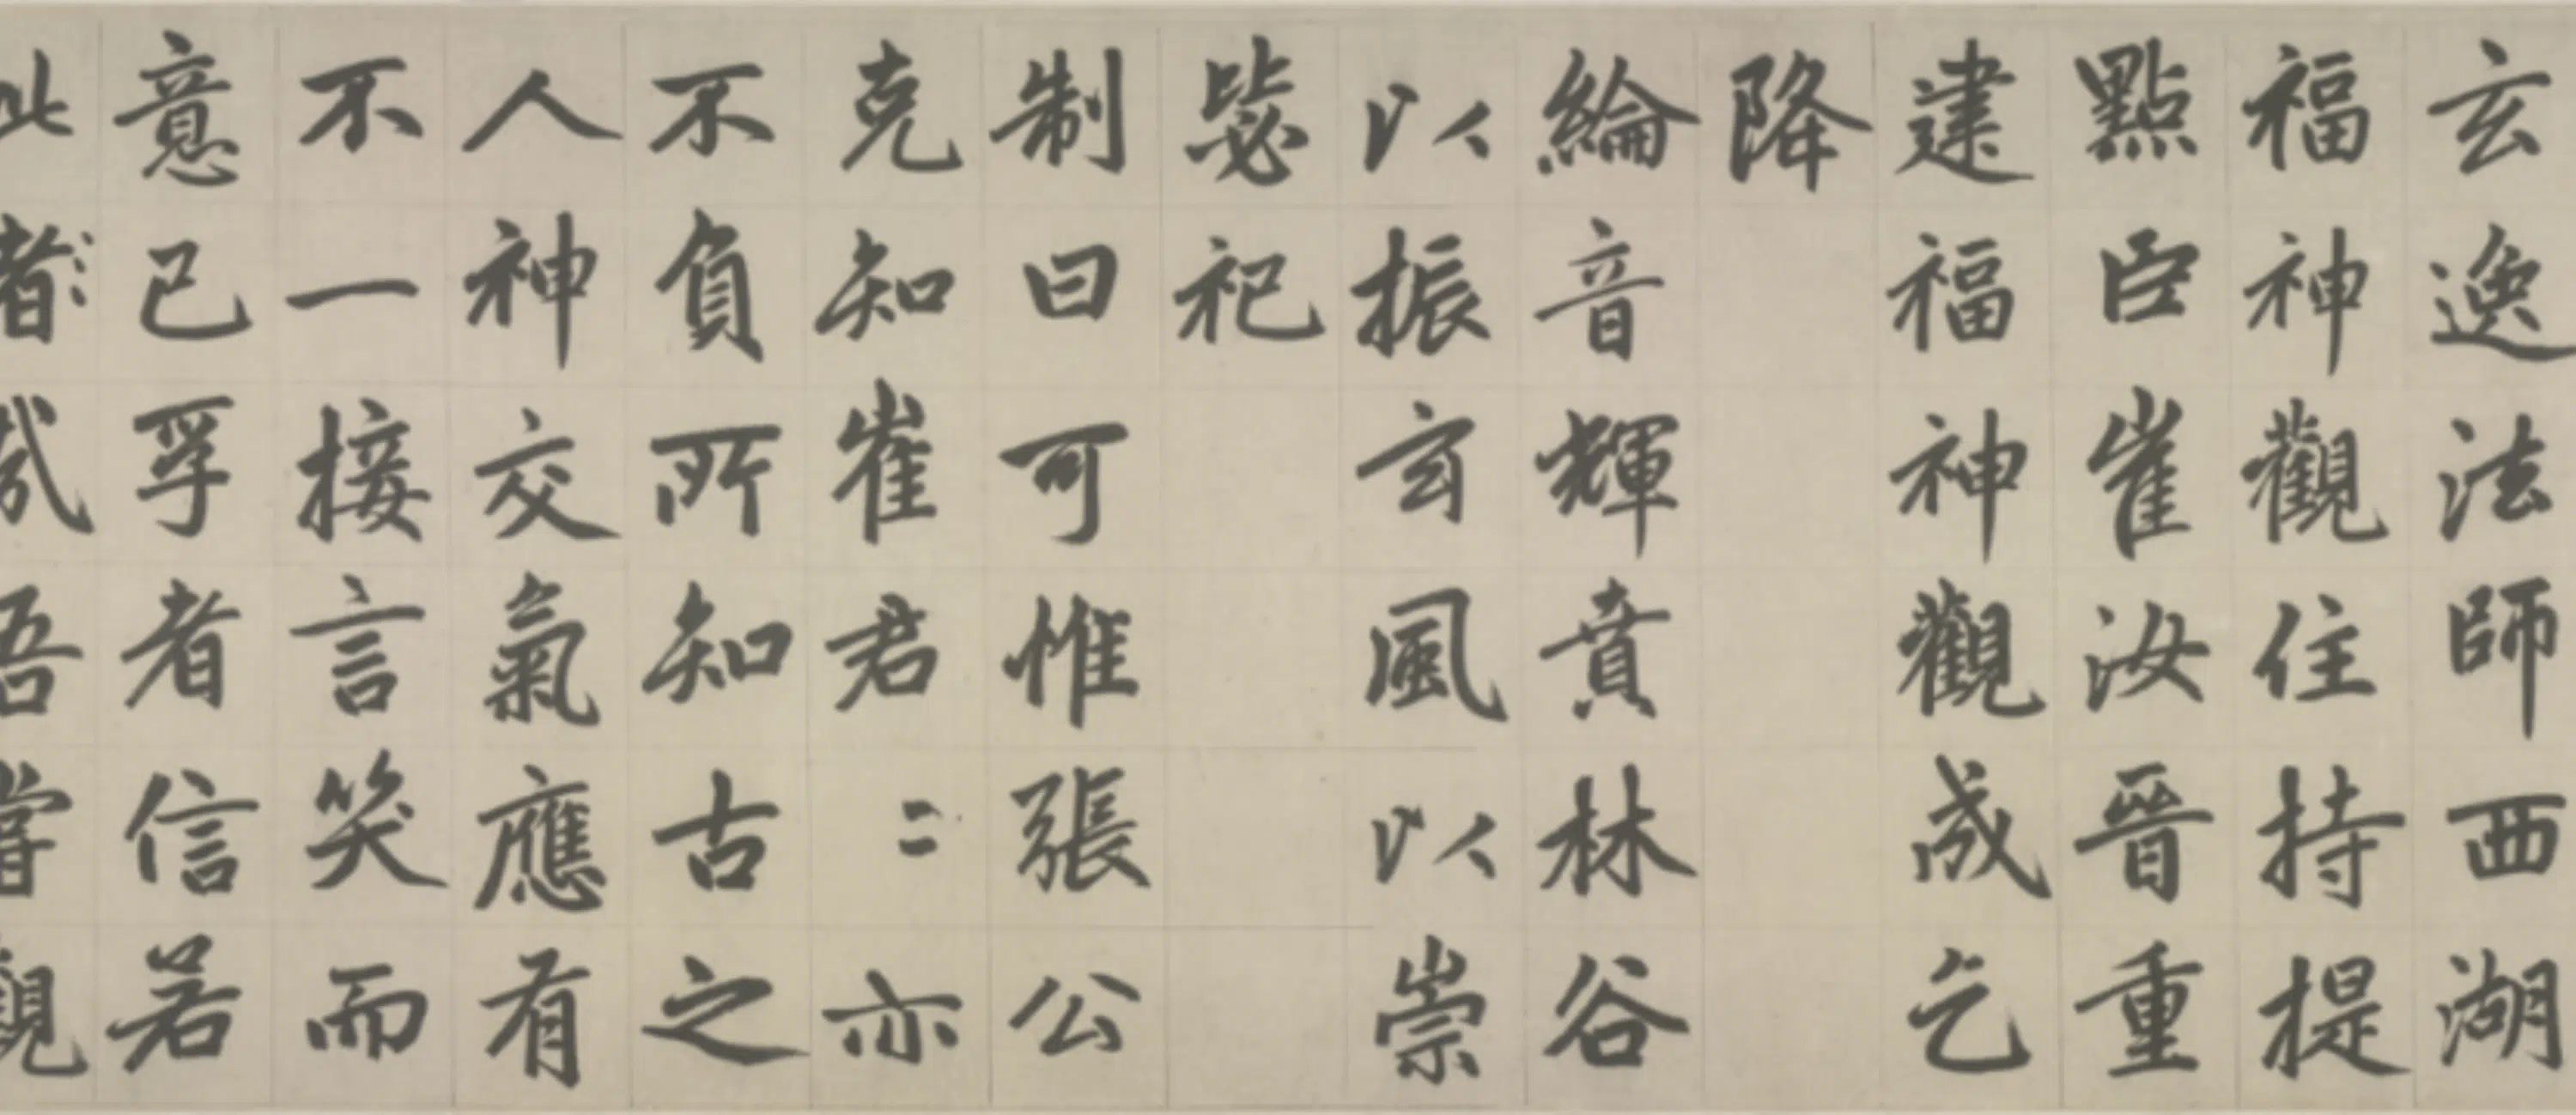 玄逸法師西湖
福神觀住持提
點臣崔汝晉重
建福神觀成乞
降
綸音輝賁林谷
以振玄風以崇
毖祀
制曰可惟張公
克知崔君〻亦
不負所知古之
人神交氣應有
不一接言笑而
意已孚者信若
此者哉吾觀